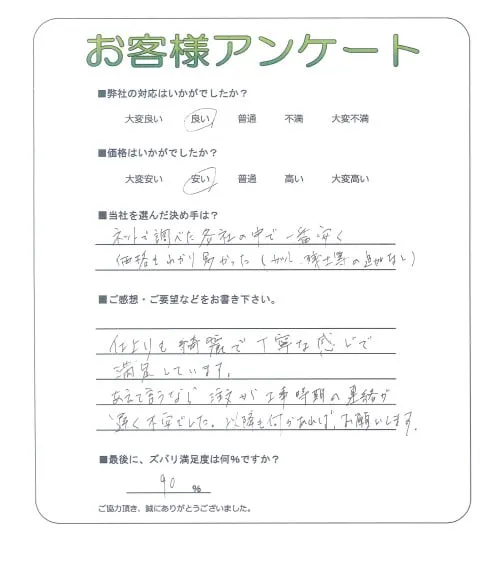 お客様アンケート
■弊社の対応はいかがでしたか？
大変良い 良い 普通 不満 大変不満
■価格はいかがでしたか？
大変安い 安い 普通 高い 大変高い
■当社を選んだ決め手は？
ネットで調べた各社の中で一番安く
価格もわかり易かった（ 残土等の追加なし）
■ご感想・ご要望などをお書き下さい。
仕上りも綺麗で丁寧な感じで
満足しています。
あえて言うなら 注文から工事時期の連絡が
遅く不安でした。以降も何かあれば、お願いします。
■最後に、ズバリ満足度は何％ですか？
90 ％
ご協力頂き、誠にありがとうございました。